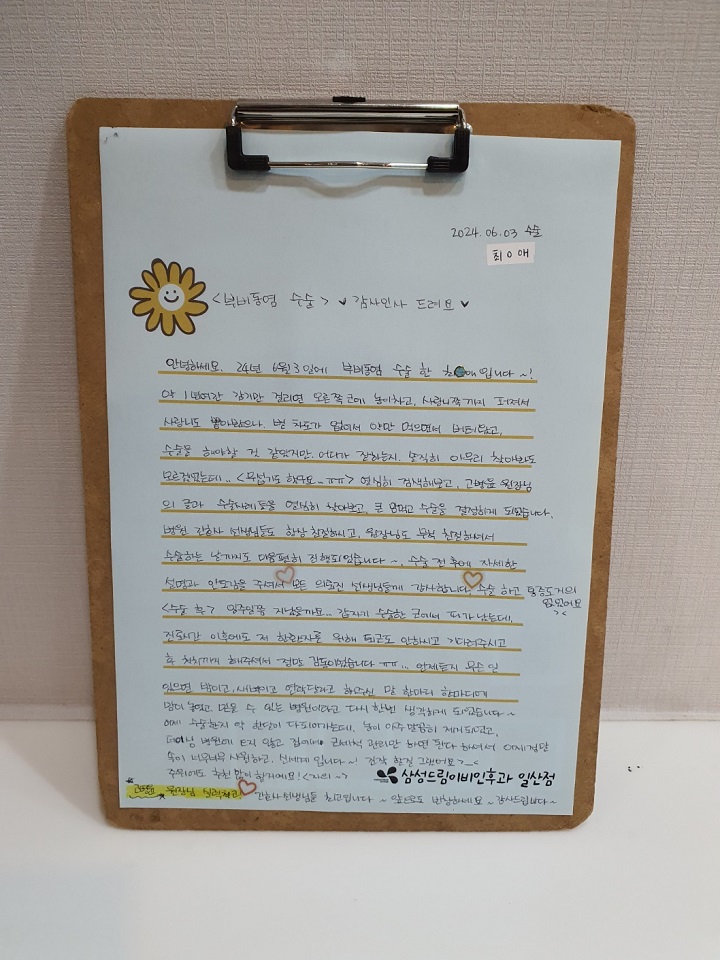 2024.06.03 수술
최ㅇ애
<부비동염 수술> ♥ 감사인사 드려요 ♥
안녕하세요. 24년 6월 3일에 부비동염 수술 한 최 애입니다 ~!
약 1년여간 감기만 걸리면 오른쪽 코에 농이차고, 사랑니쪽까지 퍼져서
사랑니도 뽑아봤으나. 별 차도가 없어서 약만 먹으면서 버티다가,
수술을 해야할 것 같았지만. 어디가 잘하는지. 솔직히 아무리 찾아봐도
모르겠었는데.. <무섭기도 했구요..ㅠㅠ> 열심히 검색해보고, 원장님
의 글과 수술사례들을 열심히 찾아보고, 큰 맘먹고 수술을 결정하게 되었습니다.
병원 간호사 선생님들도 항상 친절하시고, 원장님도 무척 친절하셔서
수술하는 날까지도 마음편히 진행되었습니다 ~, 수술 전 후에 자세한
설명과 안도감을 주셔서 모든 의료진 선생님들께 감사합니다. 수술 하고 통증도 거의
없었어요
><
<수술 후> 일주일쯤 지났을까요.. 갑자기 수술한 코에서 피가 났는데,
진료시간 이후에도 저 한환자를 위해 퇴근도 안하시고 기다려주시고
후 처치까지 해주셔서 정말 감동이었습니다 ㅠㅠ... 언제든지 무슨 일
있으면 밤이고, 새벽이고 연락달라고 하며주신 말 한마디 한마디에
맘이 놓였고. 믿을 수 있는 병원이라고 다시 한번 생각하게 되었습니다~
이제 수술한지 약 한달이 다되어가는데. 농이 아주 말끔히 제거되었고,
더이상 병원에 오지 않고 집에서 코세척 관리만 하면 된다 하여서 이제 정말
속이 너무너무 시원하고. 신세계 입니다~! 진작 할걸 그랬어요 >_<
주위에도 추천 많이 할거에요! <저의 ~>
삼성드림이비인후과 일산점
원장님 실력최고! 간호사선생님들 최고입니다 ~ 앞으로도 번창하세요 ~ 감사드립니다~